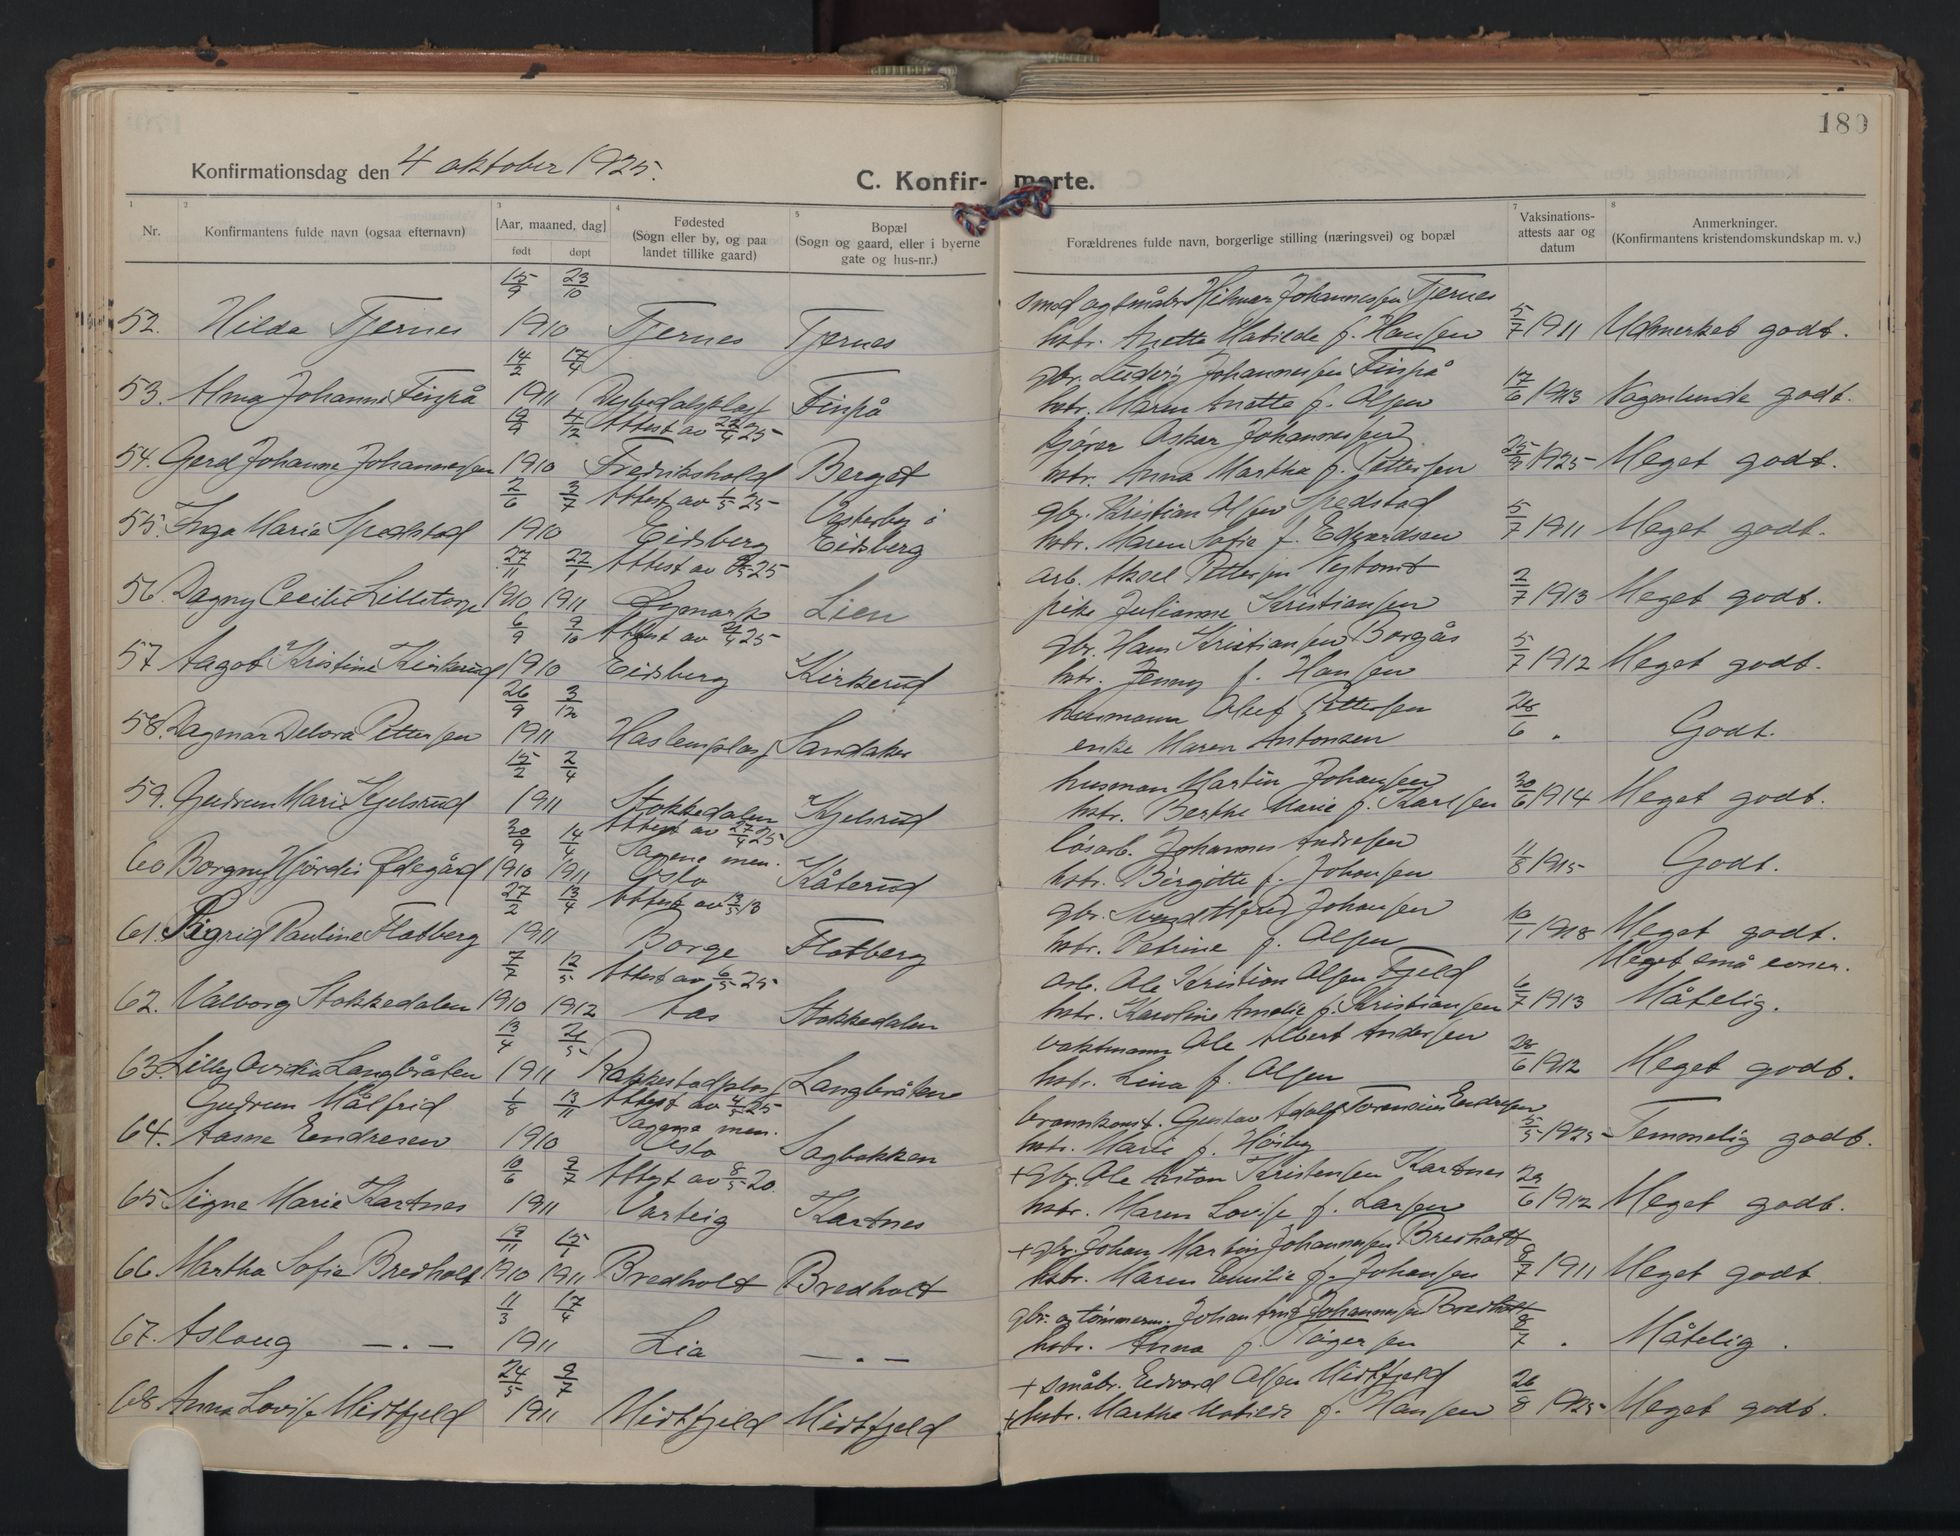 180
Konfirmationsdag den 4 oktober 1925.
C. Konfir- merte.
1 2 3 4 5 7 8
Nr. Konfirmantens fulde navn (ogsaa efternavn) [Aar, maaned, dag] født døpt Fødested (Sogn eller by, og paa landet tillike gaard) Bopæl (Sogn og gaard, eller i byerne gate og hus-nr.) Forældrenes fulde navn, borgerlige stilling (næringsvei) og bopæl Vaksinations-attests aar og datum Anmerkninger. (Konfirmantens kristendomskundskap m. v.)
15/9 23/10 smed og småbr. Hilmar Johannessen Tjernes
52. Hilda Tjernes 1910 Tjernes Tjernes hstr. Anette Matilde f. Hansen 5/7 1911 Udmerket godt.
14/2 17/4 gbr. Ludvig Johannessen Finså
53. Alma Johanne Finså 1911 Finså hstr. Maren Anette f. Olsen 17/6 1913 godt.
9/9 4/12 Attest av 25 kjører Oskar Johannessen
54. Gerd Johanne Johannessen 1910 Fredrikshald Berget hstr. Anna Martha f. Pettersen 1925 Meget godt.
2/6 3/7 Attest av 1/5 25 gbr. Kristian Olsen Spedstad
55. Inga Marie Spedstad 1910 Eidsberg Østerby i Eidsberg hstr. Maren Sofie f. Edvardsen 5/7 1911 Meget godt.
27/11 22/1 Attest av 25 arb. Aksel Pettersen
56. Dagny Cecilie Lilletorp 1910 1911 Øymark Lien pike Julianne Kristiansen 2/7 1913 Meget godt.
6/9 9/10 Attest av 25 gbr. Hans Kristiansen Borgås
57 Aagot Kristine Kirkerud 1910 Eidsberg Kirkerud hstr. Jenny f. Hansen 5/7 1912 Meget godt.
26/9 3/12 husmann Oluf Pettersen
58. Dagmar Delora Pettersen 1911 Haslemplas Sandaker enke Maren Antonsen 28/6 " Godt.
15/2 2/4 husman Martin Johansen
59. Gudrun Marie Kjelsrud 1911 Stokkedalen Kjelsrud hstr. Berthe Marie f. Karlsen 30/6 1914 Meget godt.
30/9 14/4 Attest av 27/4 25 løsarb. Johannes Andresen
60 Borgny Hjördis Ødegård 1910 1911 Sagene men. Oslo Kåterud hstr. Birgitte f. Johansen 11/8 1915 Godt.
27/2 13/4 Attest av 13/5 13 gbr. Svend Alfred Johansen
61. Sigrid Pauline Flatberg 1911 Borge Flatberg hstr. Petrine f. Olsen 10/1 1918 Meget godt.
7/7 12/5 Attest av 6/5 25 arb. Ole Kristian Olsen Fjeld Meget små evner.
62. Valborg Stokkedalen 1910 1912 Aas Stokkedalen hstr. Karoline Amalie f. Kristiansen 6/7 1913 Måtelig.
13/4 21/5 vaktmann Ole Albert Andersen
63. Lilly Ovidia Langbråten 1911 Rakkestadplas Langbråtene hstr. Lina f. Olsen 28/6 1912 Meget godt.
Gudrun Målfrid 1/8 13/11 Attest av 4/5 25 brannkonst. Gustav Adolf Torensius Endresen
64. Aasne Endresen 1910 Sagene men. Oslo Sagbakken hstr. Marie f. Høiby 5/5 1925 Temmelig godt.
10/6 9/7 Attest av 8/5 20. + gbr. Ole Anton Kristensen Kartnes
65 Signe Marie Kartnes 1911 Varteig Kartnes hstr. Maren Lovise f. Larsen 29/6 1912 Meget godt.
19/11 15/1 + gbr. Johan Martin Johannessen Bredholt
66. Martha Sofie Bredholt 1910 1911 Bredholt Bredholt hstr. Maren Emilie f. Johansen 8/7 1911 Meget godt
11/3 17/4 gbr. og tømmerm. Johan Arnt Johannessen Bredholt
67. Aslaug — . — 1911 Lia — . — hstr. Anna f. Torgersen 8/7 " Måtelig.
24/5 9/7 + småbr. Edvard Olsen Midtfjeld
68 Anna Lovise Midtfjeld 1911 Midtfjeld Midtfjeld + hstr. Martha Matilde f. Hansen 26/8 1925 Meget godt.